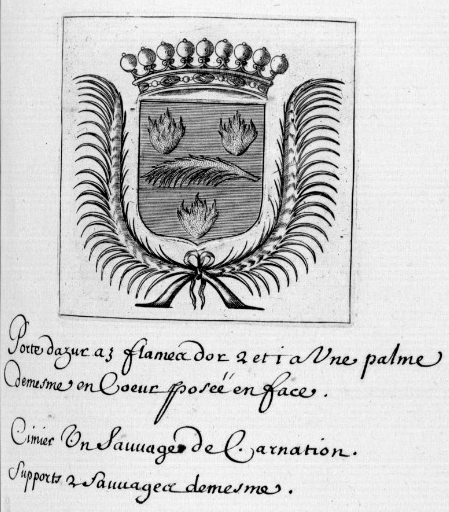 Porte dazur a 3 flamea dor 2 et 1 a Une palme
demesme en Coeur poséé en face.
Cimier Un Sauuage de Carnation.
Supports 2 sauuagea demesme.